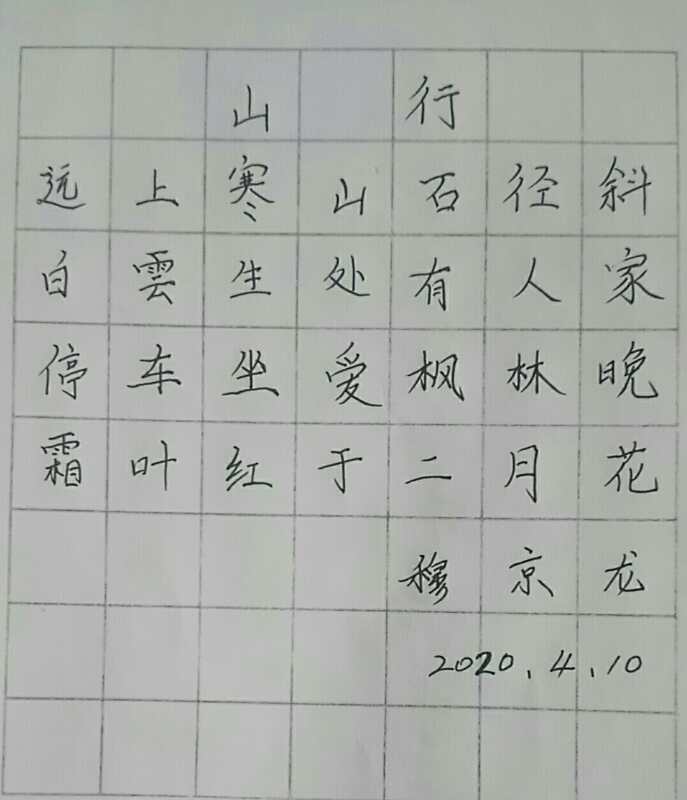 山行
远上寒山石径斜
白雲生处有人家
停车坐爱枫林晚
霜叶红于二月花
穆京龙
2020.4.10